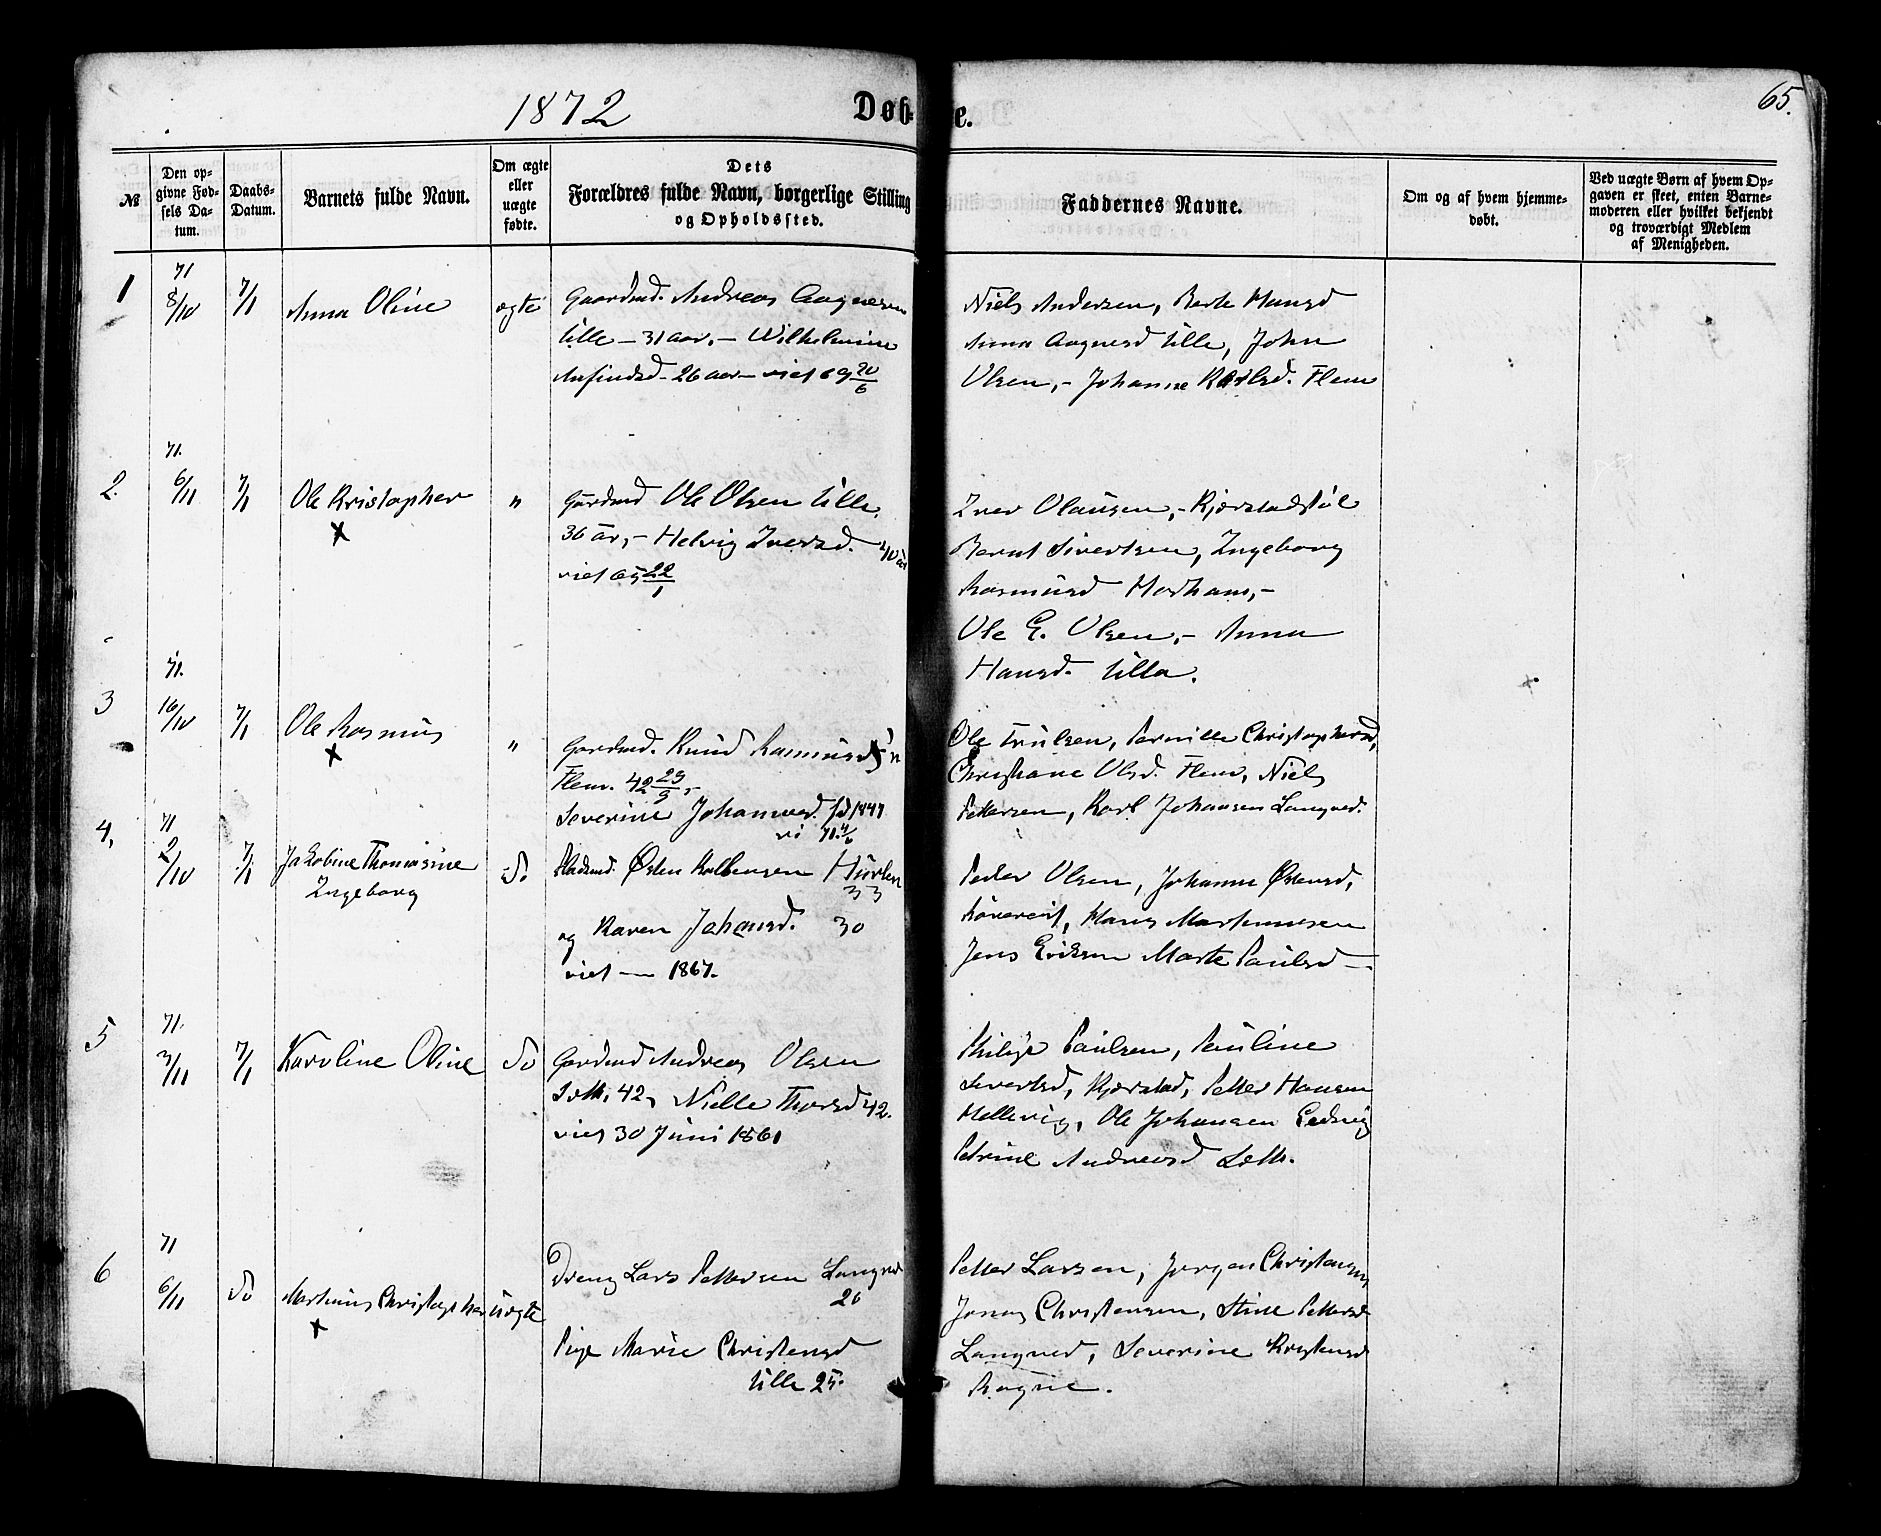 1872
Døbte.
65.
№
Den opgivne Fødsels Datum.
Daabs-Datum.
Barnets fulde Navn.
Om ægte eller uægte fødte.
Dets Forældres fulde Navn, borgerlige Stilling og Opholdssted.
Faddernes Navne.
Om og af hvem hjemmedøbt.
Ved uægte Børn af hvem Opgaven er skeet, enten Barnemoderen eller hvilket bekjendt og troværdigt Medlem af Menigheden.
1
71
8/10
7/1
Anna Oline
ægte
Gaardmd. Andreas Aagnesen
Ulle – 31 aar, – Wilhelmine
Anfindsd – 26 aar – viet 69 20/6
Niels Andersen, Berte Hansd
Anna Aagnesd Ulle, John
Olsen, – Johanne Karlsd. Flem
2.
71.
6/11
7/1
Ole Kristopher
x
"
Gårdmd Ole Olsen Ulle.
36 år, – Helvig Iversd. 40 år
viet 65 22/1
Iver Olausen, – Kjærstadstøl
Bernt Sivertsen, Ingeborg
Rasmusd
Ole E. Olsen, – Anna
Hansd. Ulla.
3
71.
16/10
7/1
Ole Rasmus
x
"
Gardmd. Knud Rasmus
Flem. 42 29/9, –
Severine Johannesd. fd 1847
vi 71. 4/6
Ole Trulsen, Pernille Christophersd,
Christiane Olsd. Flem, Niels
Pettersen, Karl Johansen Langved.
4,
71
2/10
7/1
Jakobine Thomasine
Ingeborg
do
Pladsmd. Østen Kolbensen
33
og Karen Johansd. 30
viet — 1867.
Peder Olsen, Johanne Østensd,
Hans Martinusen
Jens Eriksen Marte Paulsd —
5
71.
3/11
7/1
Karoline Oline
do
Gardmd Andreas Olsen
42, Nielle Thorsd 42.
viet 30 Juni 1861
Philip Paulsen, Pauline
Sivertsd, Kjærstad, Petter Hansen
Hellevig, Ole Johansen
Petrine Andreasd
6
71
6/11
do
Martinus Christopher
x
uægte
Dreng Lars Pettersen Langved
26
Pige Marie Christensd
Ulle 25.
Petter Larsen, Jørgen Christensen,
Jonas Christensen, Stine Pettersd
Langved, Severine Kristensd
Rogne.